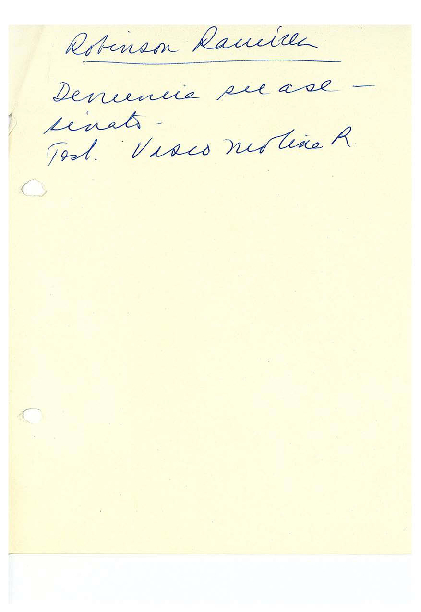 Robinson Ramirez
Denuncia su ase-
sinato.
Test. Molina R